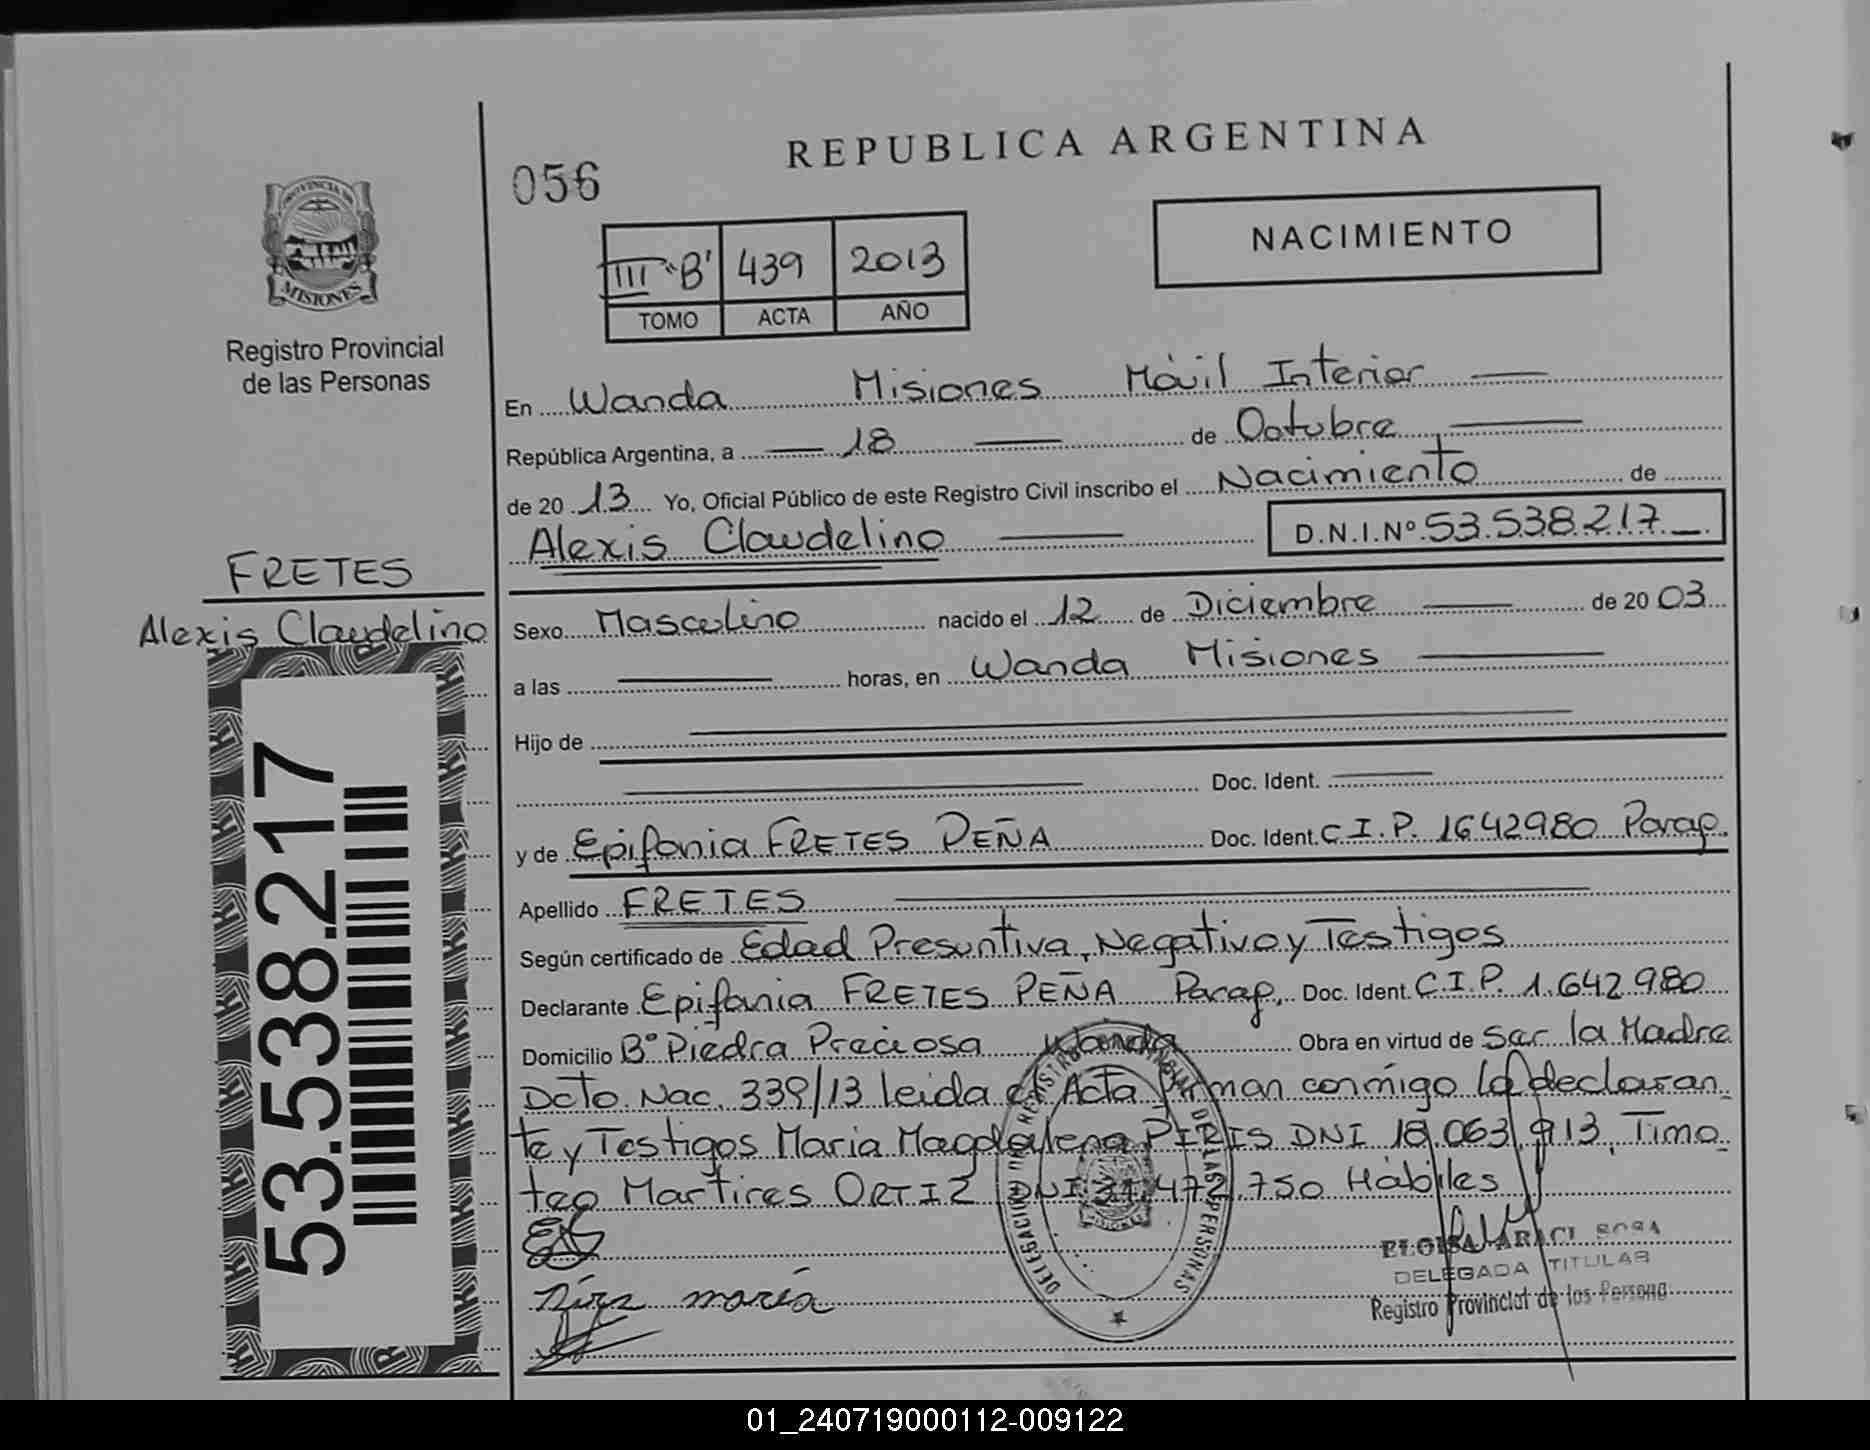 REPUBLICA ARGENTINA
056
NACIMIENTO
III "B" 439 2013
TOMO ACTA AÑO
PROVINCIA DE
MISIONES
Registro Provincial
de las Personas
En Wanda Misiones Móvil Interior
República Argentina, a 18 de Octubre
de 20 13 Yo, Oficial Público de este Registro Civil inscribo el Nacimiento de
Alexis Claudelino D.N.I.Nº 53.538.217
FRETES
Alexis Claudelino
Sexo Masculino nacido el 12 de Diciembre de 20 03
a las horas, en Wanda Misiones
Hijo de
Doc. Ident.
y de Epifania FRETES PEÑA Doc. Ident. C.I.P. 1642980 Parag.
Apellido FRETES
Según certificado de Edad Presuntiva, Negativo y Testigos
Declarante Epifania FRETES PEÑA Parag, Doc. Ident. C.I.P. 1.642.980
Domicilio Bº Piedra Preciosa Wanda Obra en virtud de Ser la Madre
Dcto. Nac. 339/13 leida el Acta firman conmigo la declaran
te y Testigos Maria Magdalena PIRIS DNI 18.063.913, Timo
teo Martires ORTIZ DNI 31.472.750 Hábiles
53.538.217
maría
ELOISA ARACI SOSA
DELEGADA TITULAR
Registro Provincial de las Persona
01_240719000112-009122